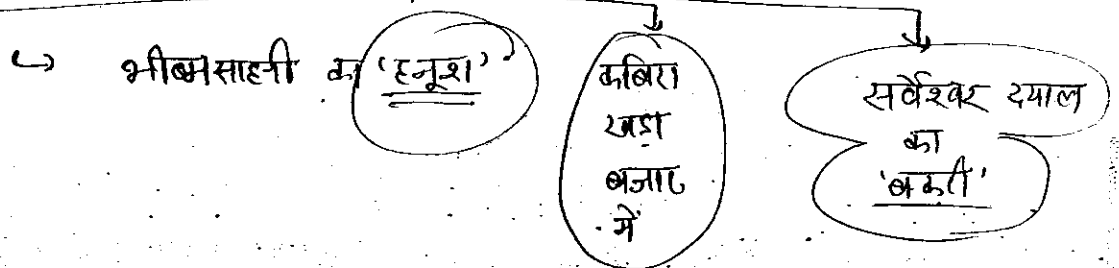 ↳ भीष्म साहनी का 'हनूश'
कबिरा
खड़ा
बजार
में
सर्वेश्वर दयाल
का
'बकरी'